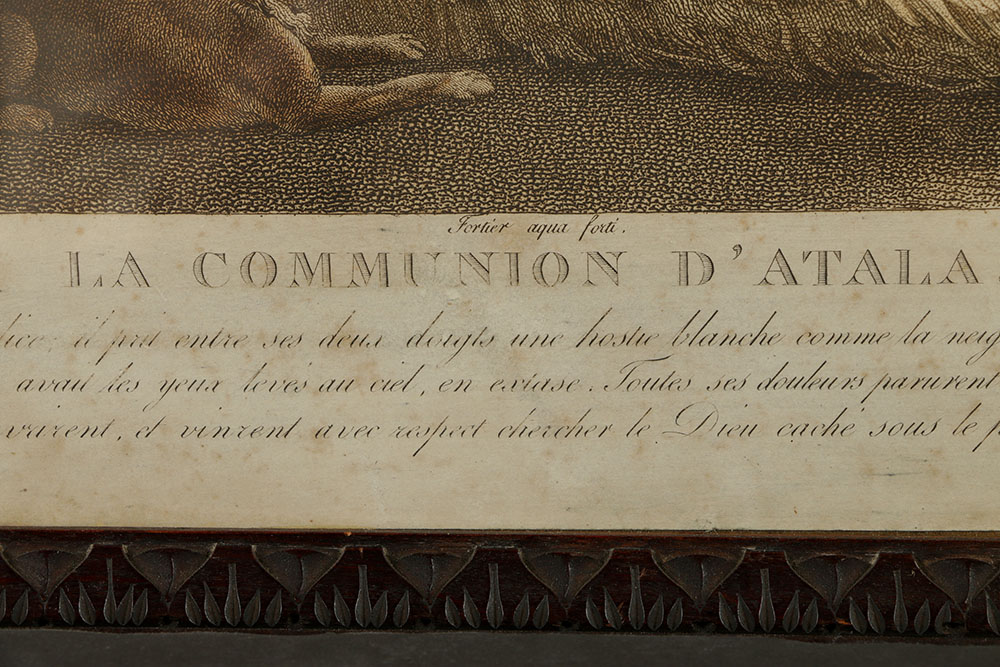 Fortier aqua forti.
LA COMMUNION D'ATALA.
il prit entre ses deux doigts une hostie blanche comme la neig
avait les yeux levés au ciel, en extase. Toutes ses douleurs parurent
varent, et vinrent avec respect chercher le Dieu caché sous le p